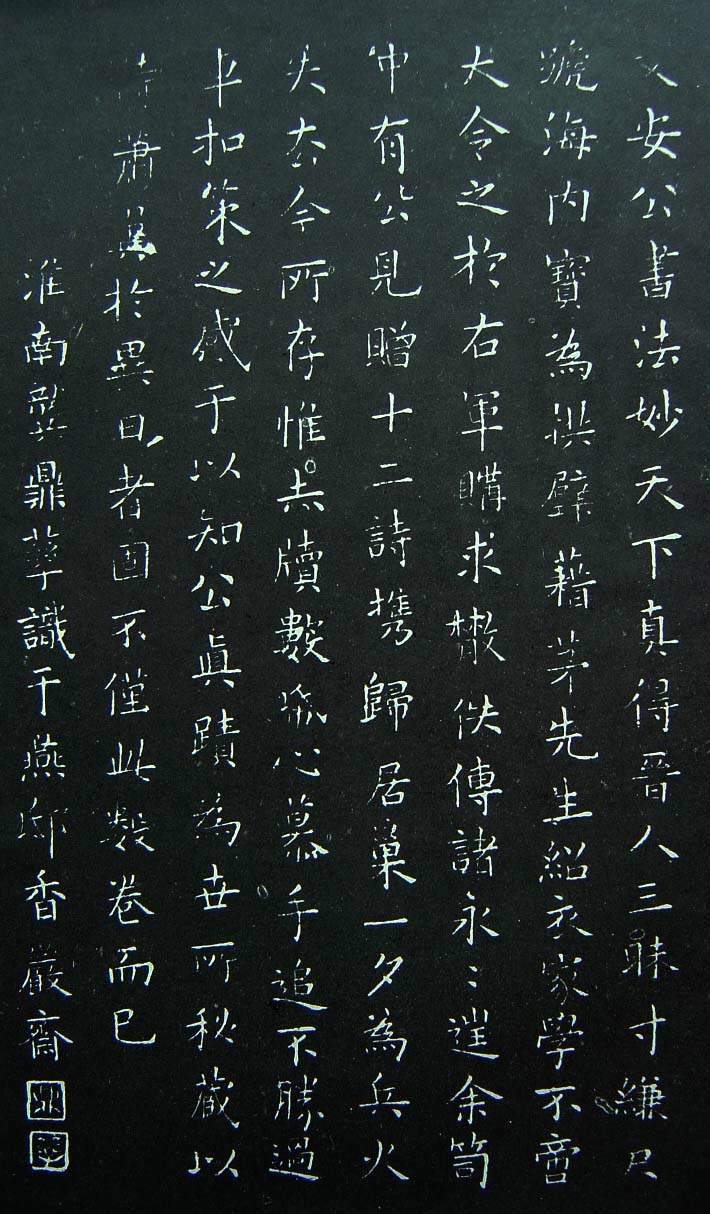 文安公書法妙天下真得晉人三昧寸縑尺
海内寶為拱璧藉茅先生紹衣家學不啻
大令之於右軍購求散佚傳諸永〻余笥
中有公見贈十二詩携歸居巢一夕為兵火
失去今所存惟赤牘數紙心慕手追不勝過
車扣策之感于以知公真蹟為世所秘藏以
待蕭翼於異日者固不僅此數卷而已
淮南龔鼎孳識于燕邸香嚴齋
鼎
孳